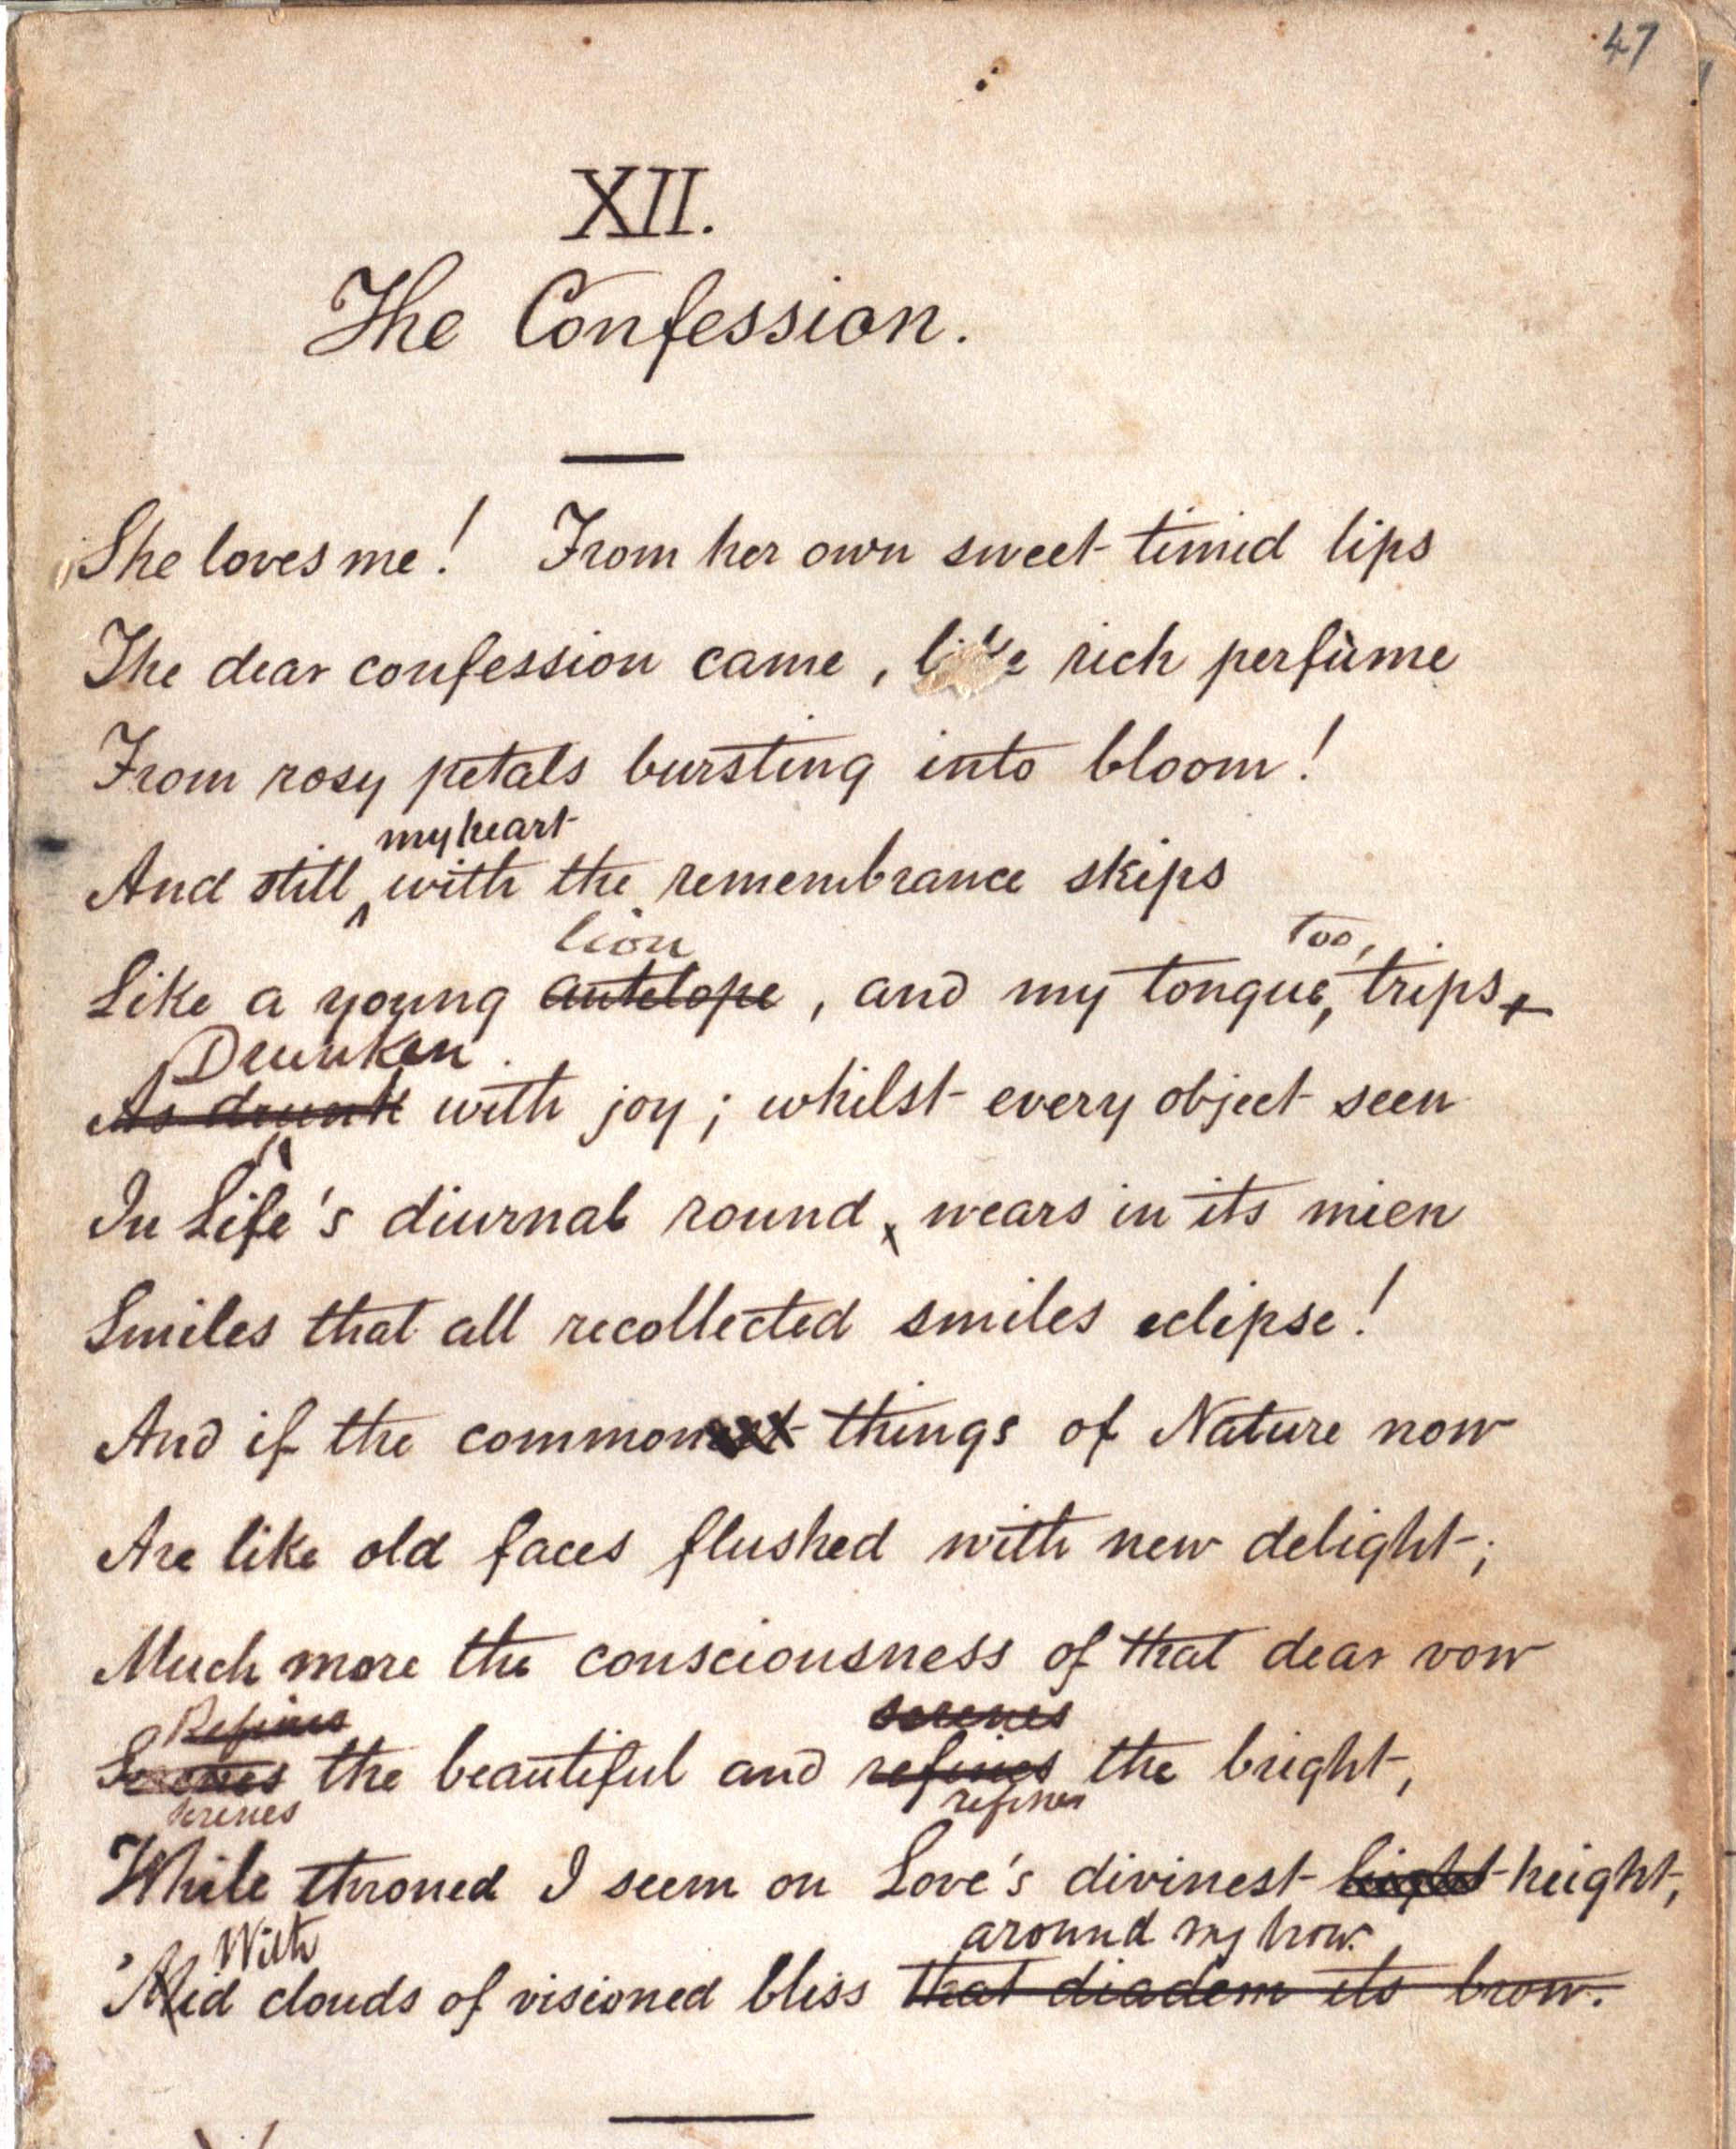 47
XII.
The Confession.
She loves me! From her own sweet timid lips
The dear confession came, like rich perfùme
From rosy petals bursting into bloom!
my heart
And still, with the remembrance skips
lion too,
Like a young antelope, and my tongue, trips
Drunken
As drunk with joy; whilst every object seen
In Life's diurnal round, wears in its mien
Smiles that all recollected smiles eclipse!
And if the commonest things of Nature now
Are like old faces flushed with new delight;
Much more the consciousness of that dear vow
Refines serenes
Serenes the beautiful and refines the bright,
serenes refines
While throned I seem on Love's divinest light height,
With around my brow.
'Mid clouds of visioned bliss that diadem its brow.